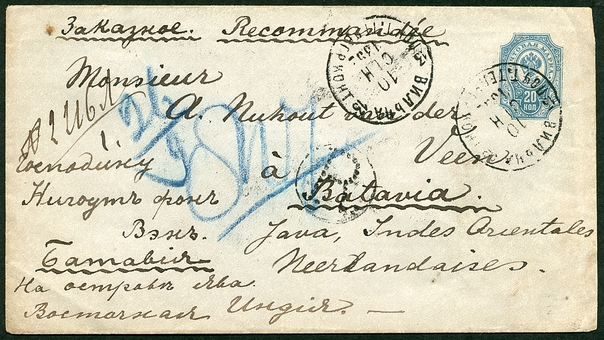 Заказное. Recommandée
Monsieur
A. Nuhout van der
Veen
à Batavia.
Java, Indes Orientales
Neerlandaises.
Господину
Нигоутъ фонъ
Вэнъ.
Батавія
На островѣ Ява
Восточная Индія. —
20
КОП
ВИЛЬНА
10
ВИЛЬНА
10
R